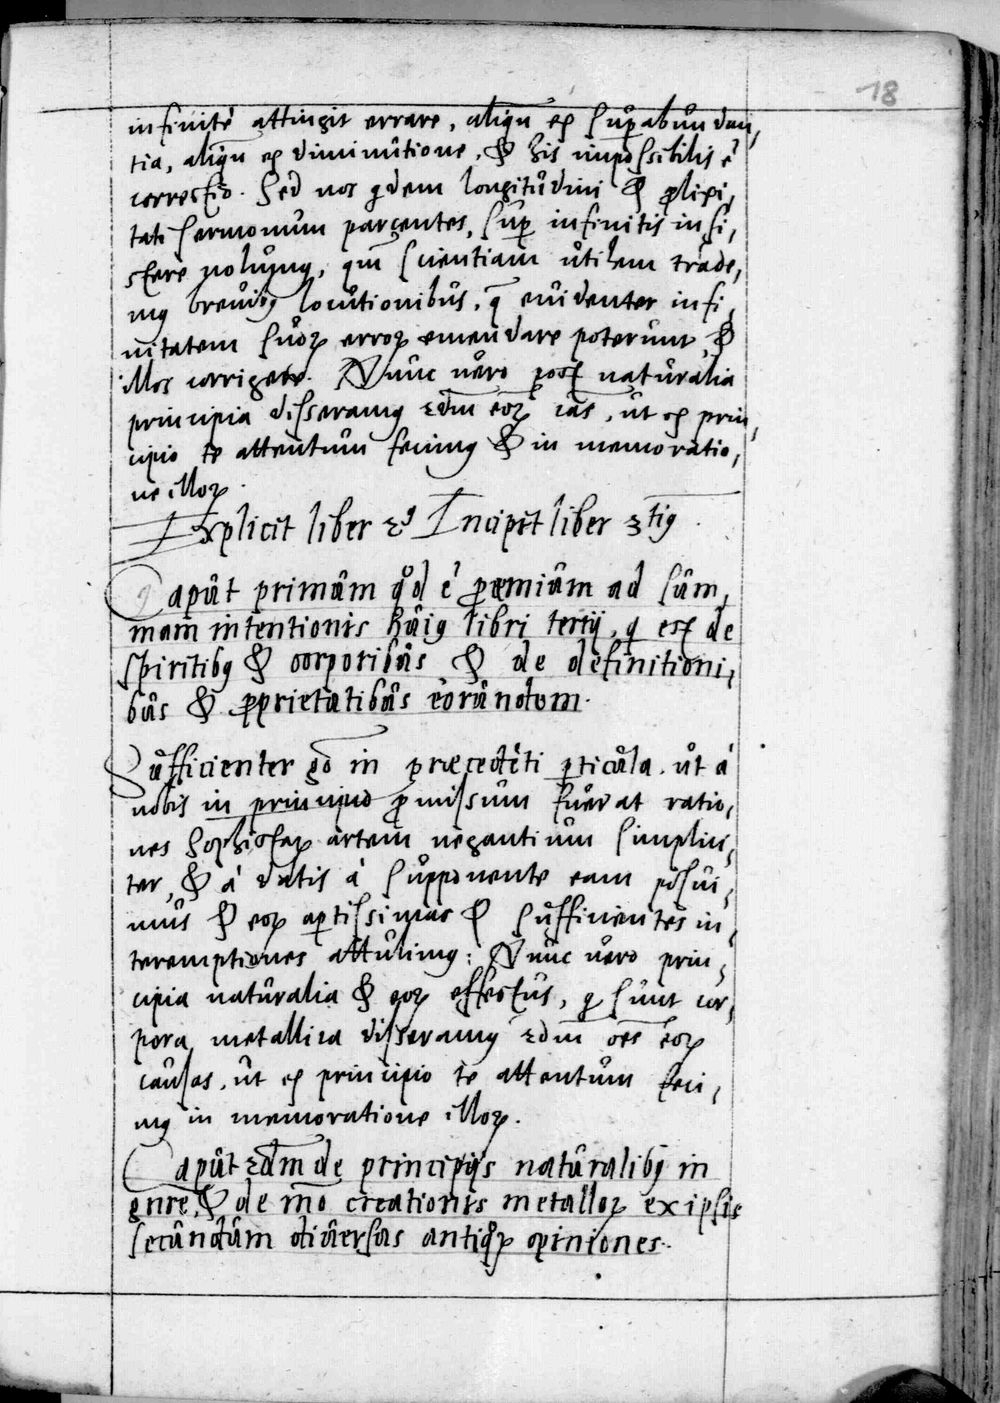 18
infinité attingit errare, aliqn̄ ex suꝑabundan,
tia, aliqn̄ ex diminutione, & his impossibilis ē
correctio. Sed nos qdem longitudini & ꝓlixi,
tati sermonum parcentes, suꝑ infinitis insi,
stere noluimꝰ, qm̄ scientiam utilem trade,
mꝰ breuibꝰ locutionibus, q̄ euidenter infi,
nitatem suoꝝ erroꝝ emendare poterunt &
illos corrigere. Nunc uero post naturalia
principia disseramꝰ 2dm eoꝝ cās, ut ex prin,
cipio te attentum fecimꝰ & in memoratio,
ne illoꝝ.
Explicit liber 2ꝰ Incipit liber 3tiꝰ.
Caput primum qd ē prœmium ad sum,
mam intentionis huiꝰ libri tertij, q est de
spiritibꝰ & corporibus & de definitioni,
bus & ꝓprietatibus eorundem.
Sufficienter qd in præcedēti ꝑticula, ut á
nobis in principio ꝓmissum fuerat ratio,
nes sophistaꝝ artem negantium simplici,
ter, & á datis á supponente eam posui,
mus & eoꝝ aꝑtissimas & sufficientes in,
teremptiones attulimꝰ: Nunc uero prin,
cipia naturalia & eoꝝ effectus, q sunt cor,
pora metallica disseramꝰ 2dm oēs eoꝝ
causas, ut ex principio te attentum feci,
mꝰ in memoratione illoꝝ.
Caput 2dm de principijs naturalibꝰ in
gn̄re, & de mō creationis metalloꝝ ex ipsis
secundum diuersas antiqꝝ opiniones.